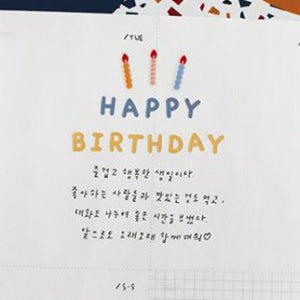 /TUE
HAPPY
BIRTHDAY
즐겁고 행복한 생일이다.
좋아하는 사람들과 맛있는 것도 먹고,
대화도 나누며 좋은 시간을 보냈다.
앞으로도 오래오래 함께해줘♡